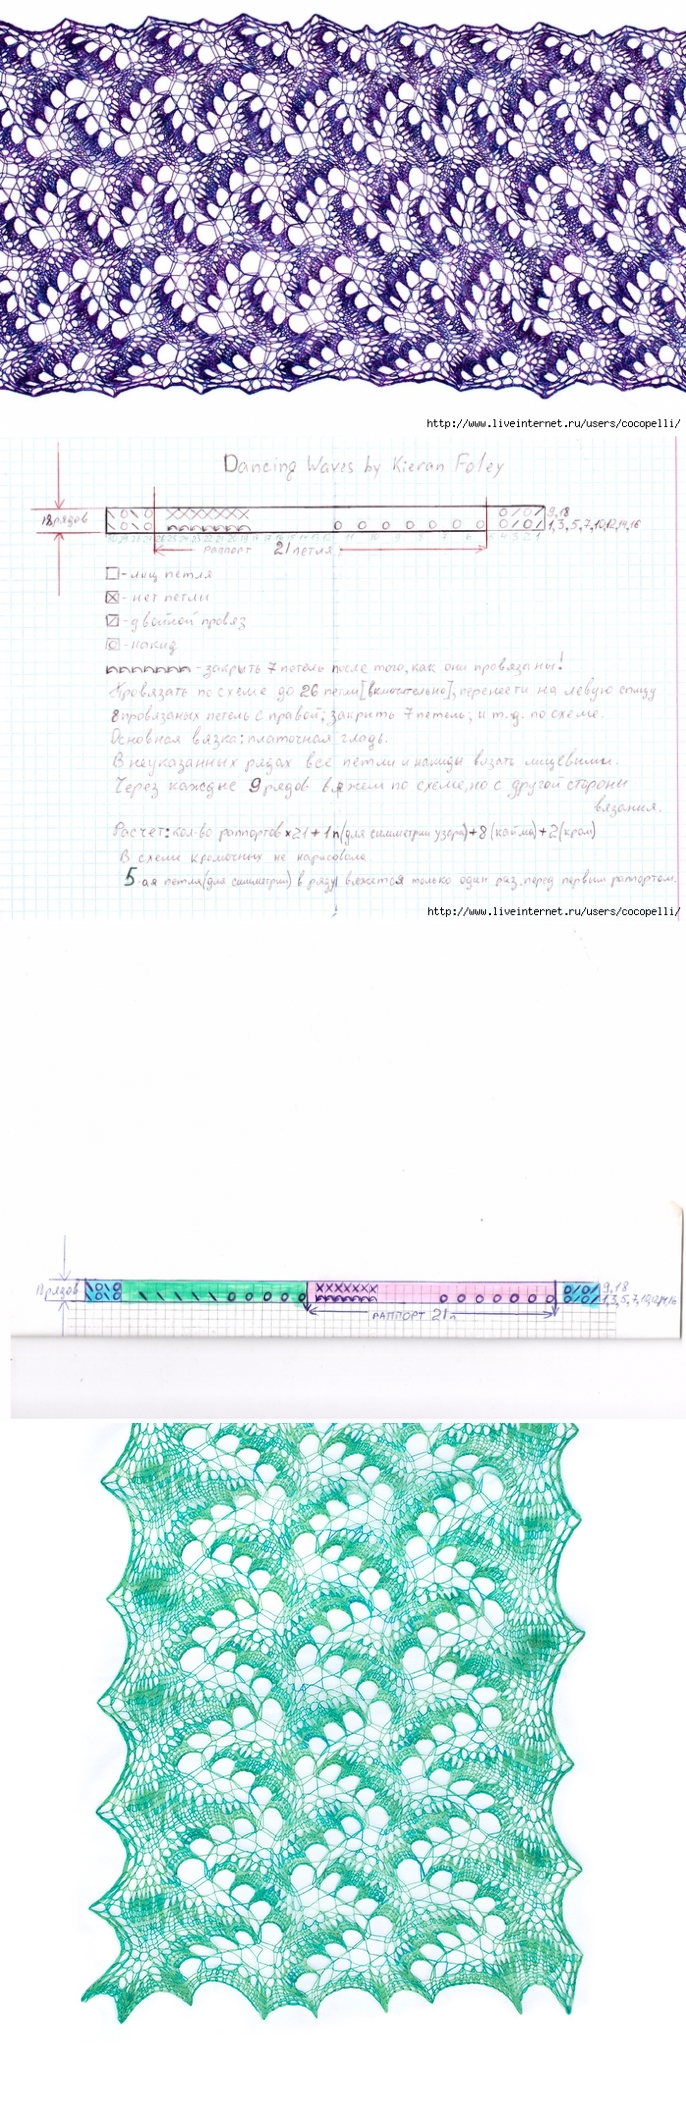 http://www.liveinternet.ru/users/cocopelli/
Dancing Waves by Kieran Foley
18 рядов
9,18
1,3,5,7,10,12,14,16
раппорт 21 петля
- лиц петля
- нет петли
- двойной провяз
- накид
- закрыть 7 петель после того, как они провязаны!
Провязать по схеме до 26 петли [включительно], перенести на левую спицу
8 провязаных петель с правой; закрыть 7 петель; и т.д. по схеме.
Основная вязка: платочная гладь.
В неуказанных рядах все петли и накиды вязать лицевыми.
Через каждые 9 рядов вяжем по схеме, но с другой стороны
вязания.
Расчет: кол-во раппортов х 21 + 1п (для симметрии узора) + 8 (кайма) + 2 (кром)
В схеме кромочных не нарисовала.
5-ая петля (для симметрии) в ряду вяжется только один раз, перед первым раппортом.
http://www.liveinternet.ru/users/cocopelli/
рядов
9,18
1,3,5,7,10,12,14,16
РАППОРТ 21 п